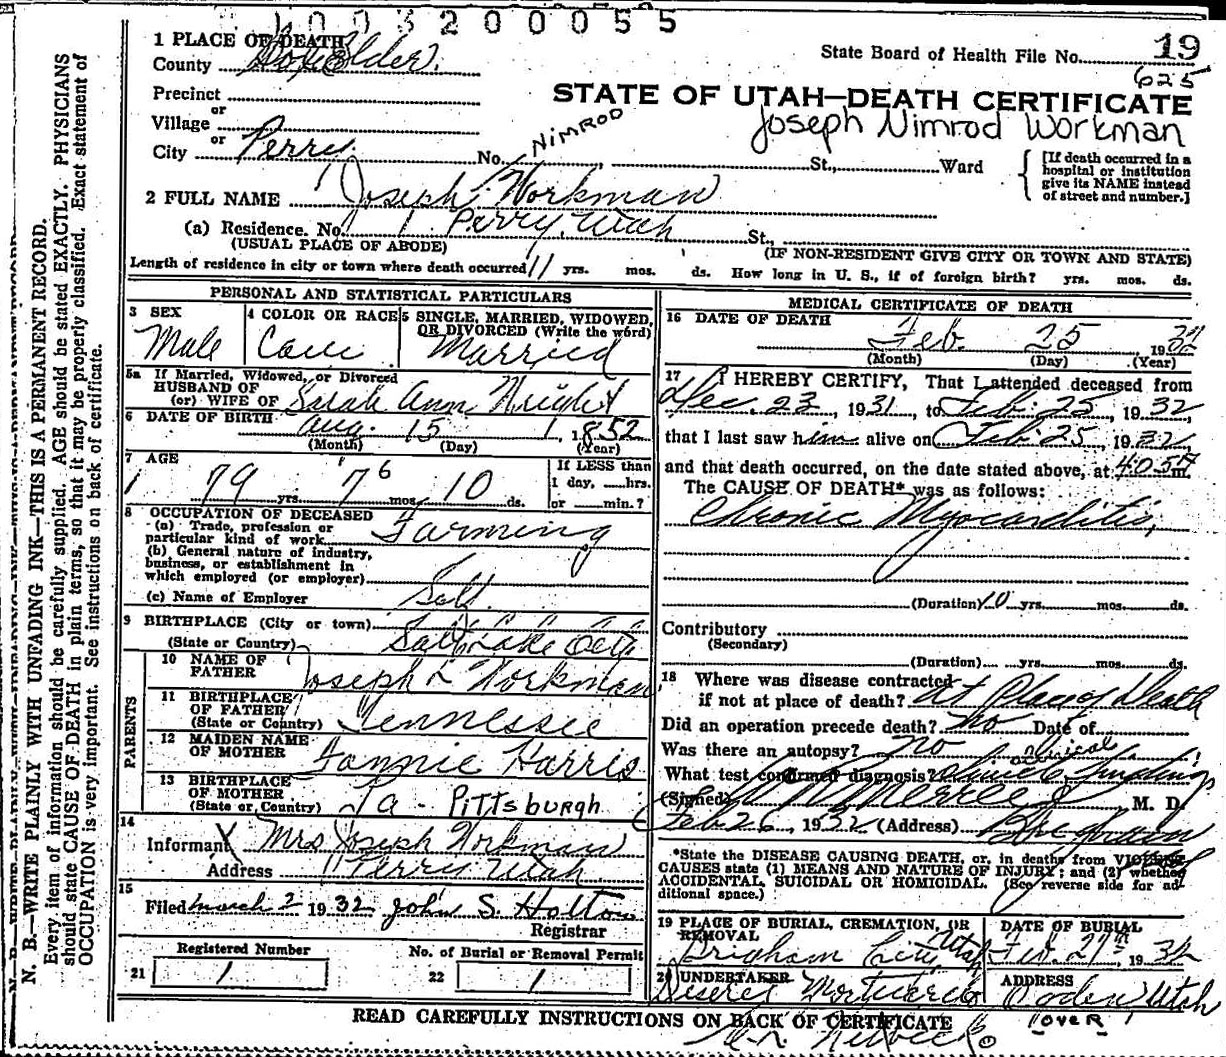 1003200055
1 PLACE OF DEATH
County Box Elder.
State Board of Health File No. 19
625
Precinct
or
Village
or
City Perry No. St., Ward
STATE OF UTAH—DEATH CERTIFICATE
Joseph Nimrod Workman
[If death occurred in a
hospital or institution
give its NAME instead
of street and number.]
NIMROD
2 FULL NAME Joseph Workman
(a) Residence. No. Perry, Utah St.,
(USUAL PLACE OF ABODE) (IF NON-RESIDENT GIVE CITY OR TOWN AND STATE)
Length of residence in city or town where death occurred 11 yrs. mos. ds. How long in U. S., if of foreign birth? yrs. mos. ds.
PERSONAL AND STATISTICAL PARTICULARS
3 SEX
Male
4 COLOR OR RACE
Cauc
5 SINGLE, MARRIED, WIDOWED,
OR DIVORCED (Write the word)
Married
5a If Married, Widowed, or Divorced
HUSBAND OF
(or) WIFE OF Sarah Ann Wright
6 DATE OF BIRTH Aug. 15 1, 1852
(Month) (Day) (Year)
7 AGE
79 yrs. 7 6 mos. 10 ds.
If LESS than
1 day, hrs.
or min.?
8 OCCUPATION OF DECEASED
(a) Trade, profession or
particular kind of work Farming
(b) General nature of industry,
business, or establishment in
which employed (or employer)
(c) Name of Employer Self.
9 BIRTHPLACE (City or town)
(State or Country) Salt Lake City
PARENTS
10 NAME OF
FATHER Joseph Workman
11 BIRTHPLACE
OF FATHER
(State or Country) Tennessee
12 MAIDEN NAME
OF MOTHER Fannie Harris
13 BIRTHPLACE
OF MOTHER
(State or Country) Pa - Pittsburgh
14
Informant X Mrs Joseph Workman
Address Perry Utah
15
Filed March 2 1932 John S. Holton
Registrar
Registered Number
21 1
No. of Burial or Removal Permit
22 1
MEDICAL CERTIFICATE OF DEATH
16 DATE OF DEATH
Feb. 25 1932
(Month) (Day) (Year)
17 I HEREBY CERTIFY, That I attended deceased from
Dec. 23, 1931, to Feb. 25, 1932,
that I last saw him alive on Feb. 25, 1932
and that death occurred, on the date stated above, at m.
The CAUSE OF DEATH* was as follows:
Chronic Myocarditis,
(Duration) 10 yrs. mos. ds.
Contributory
(Secondary)
(Duration) yrs. mos. ds.
18 Where was disease contracted
if not at place of death? At Place of Death
Did an operation precede death? no Date of
Was there an autopsy? no
What test confirmed diagnosis? clinical findings
(Signed) M. D.
Feb 26, 1932 (Address) Brigham
*State the DISEASE CAUSING DEATH, or, in deaths from VIOLENT
CAUSES state (1) MEANS AND NATURE OF INJURY; and (2) whether
ACCIDENTAL, SUICIDAL OR HOMICIDAL. (See reverse side for ad-
ditional space.)
19 PLACE OF BURIAL, CREMATION, OR
REMOVAL
Brigham City Utah
DATE OF BURIAL
Feb. 1932
20 UNDERTAKER
Deseret Mortuary Co
ADDRESS
Ogden Utah
READ CAREFULLY INSTRUCTIONS ON BACK OF CERTIFICATE
(OVER)
N. B.—WRITE PLAINLY WITH UNFADING INK—THIS IS A PERMANENT RECORD.
Every item of information should be carefully supplied. AGE should be stated EXACTLY. PHYSICIANS
should state CAUSE OF DEATH in plain terms, so that it may be properly classified. Exact statement of
OCCUPATION is very important. See instructions on back of certificate.